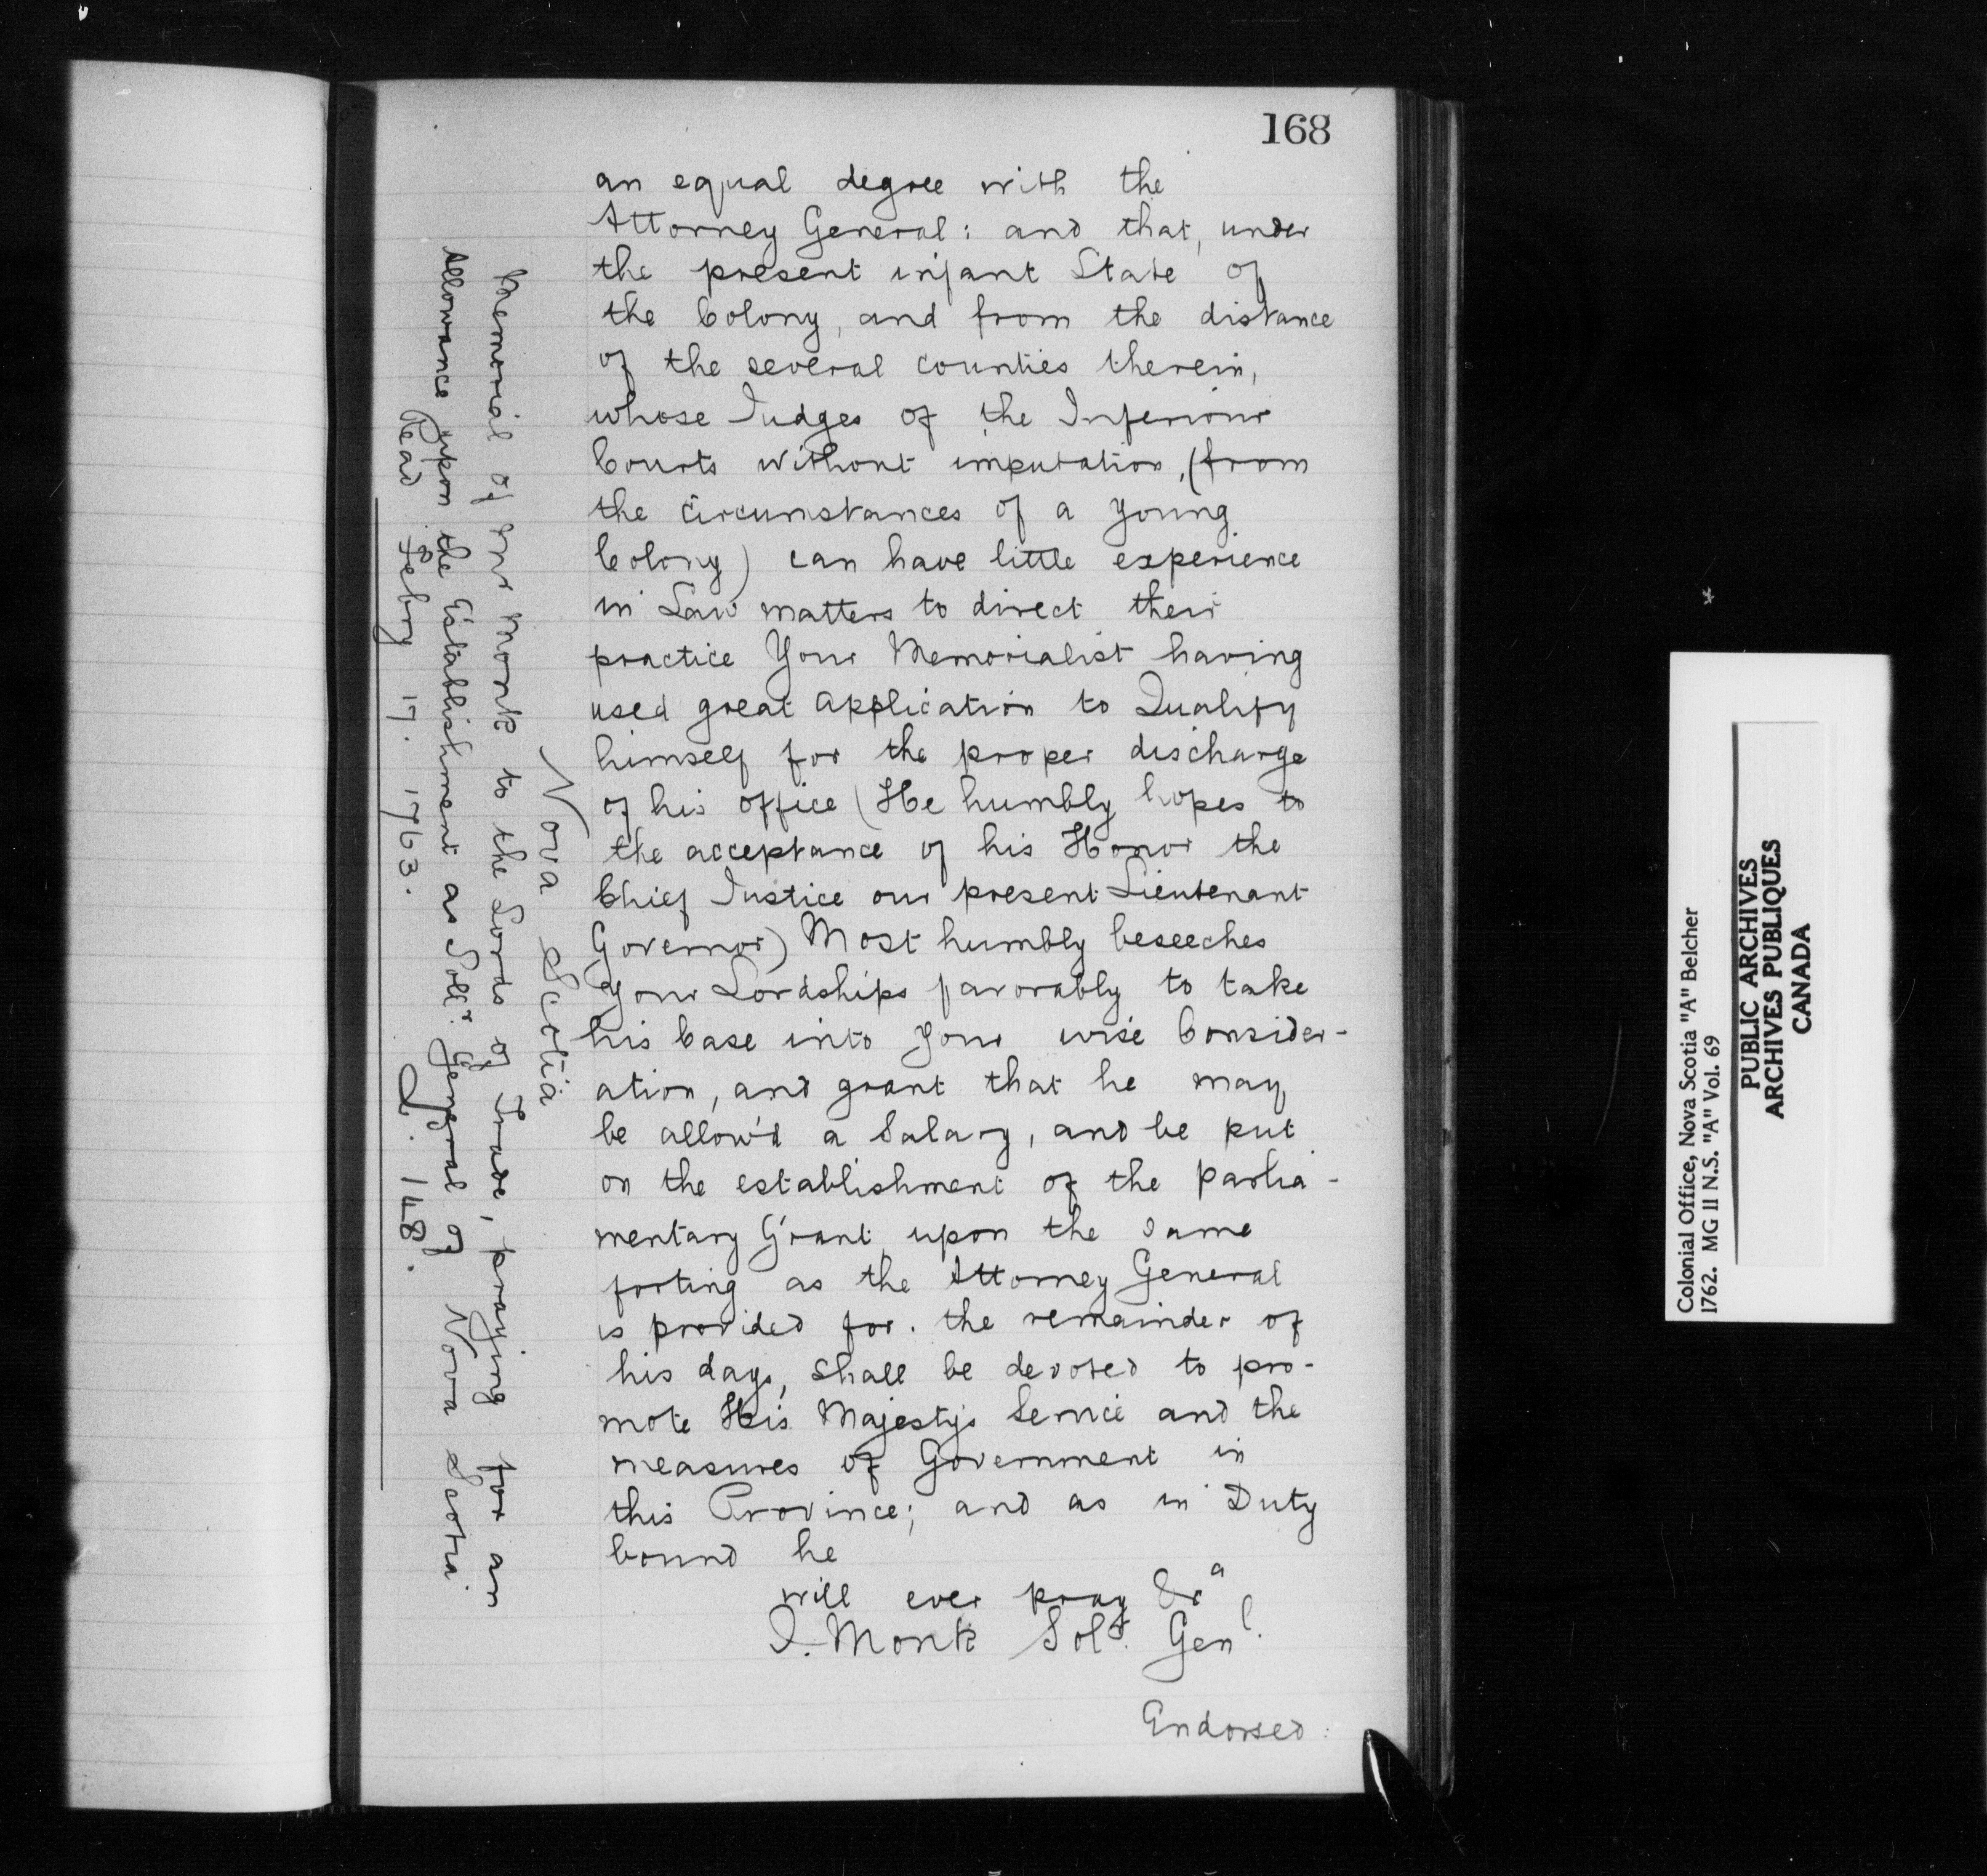 168
an equal degree with the
Attorney General: and that, under
the present infant State of
the Colony, and from the distance
of the several counties therein,
whose Judges of the Inferiour
Courts without imputation, (from
the circumstances of a young
Colony) can have little experience
in Law matters to direct their
practice Your Memorialist having
used great application to Qualify
himself for the proper discharge
of his office (He humbly hopes to
the acceptance of his Honor the
Chief Justice our present Lieutenant
Governor) Most humbly beseeches
your Lordships favorably to take
his Case into your wise Consider-
ation, and grant that he may
be allow'd a Salary, and be put
on the establishment of the Parlia-
mentary Grant upon the same
footing as the Attorney General
is provided for. the remainder of
his days, shall be devoted to pro-
mote His Majesty's Service and the
measures of Government in
this Province; and as in Duty
bound he
will ever pray &c a
J. Monk Solr. Genl.
Endorsed:
Nova Scotia
Memorial of Mr Monk to the Lords of Trade, praying for an
Allowance upon the Establishment as Sollr. General of Nova Scotia
Read Febry 17. 1763. Q. 148.
Colonial Office, Nova Scotia "A" Belcher
1762. MG II N.S. "A" Vol. 69
PUBLIC ARCHIVES
ARCHIVES PUBLIQUES
CANADA